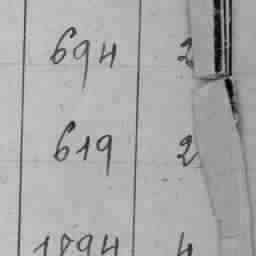 694 2
619 2
1794 4